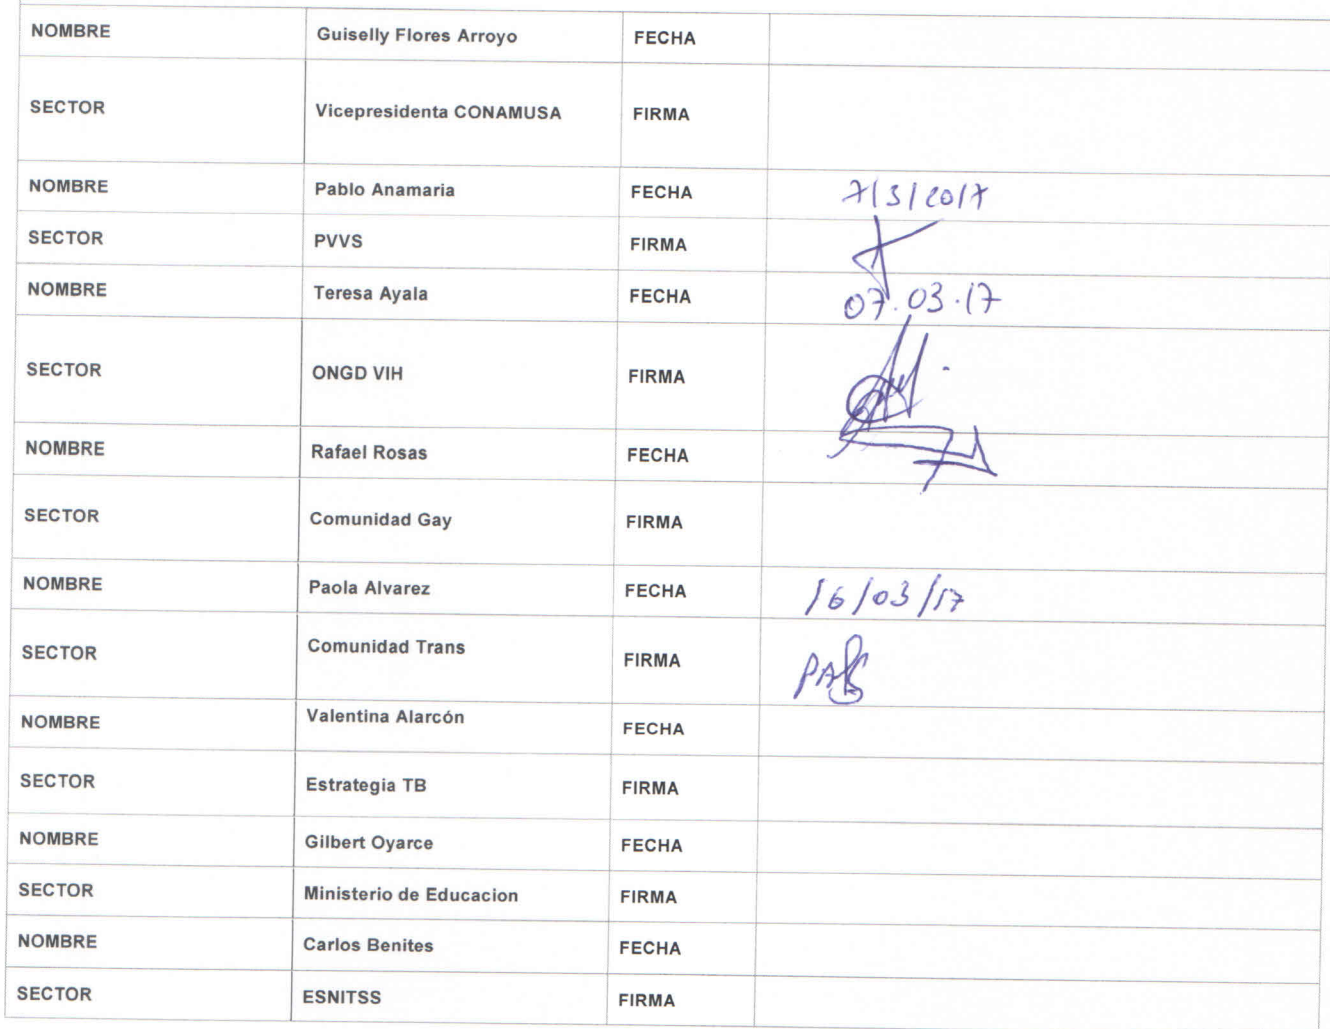 NOMBRE Guiselly Flores Arroyo FECHA
SECTOR Vicepresidenta CONAMUSA FIRMA
NOMBRE Pablo Anamaria FECHA 7/3/2017
SECTOR PVVS FIRMA
NOMBRE Teresa Ayala FECHA 07.03.17
SECTOR ONGD VIH FIRMA
NOMBRE Rafael Rosas FECHA
SECTOR Comunidad Gay FIRMA
NOMBRE Paola Alvarez FECHA 16/03/17
SECTOR Comunidad Trans FIRMA
NOMBRE Valentina Alarcón FECHA
SECTOR Estrategia TB FIRMA
NOMBRE Gilbert Oyarce FECHA
SECTOR Ministerio de Educacion FIRMA
NOMBRE Carlos Benites FECHA
SECTOR ESNITSS FIRMA